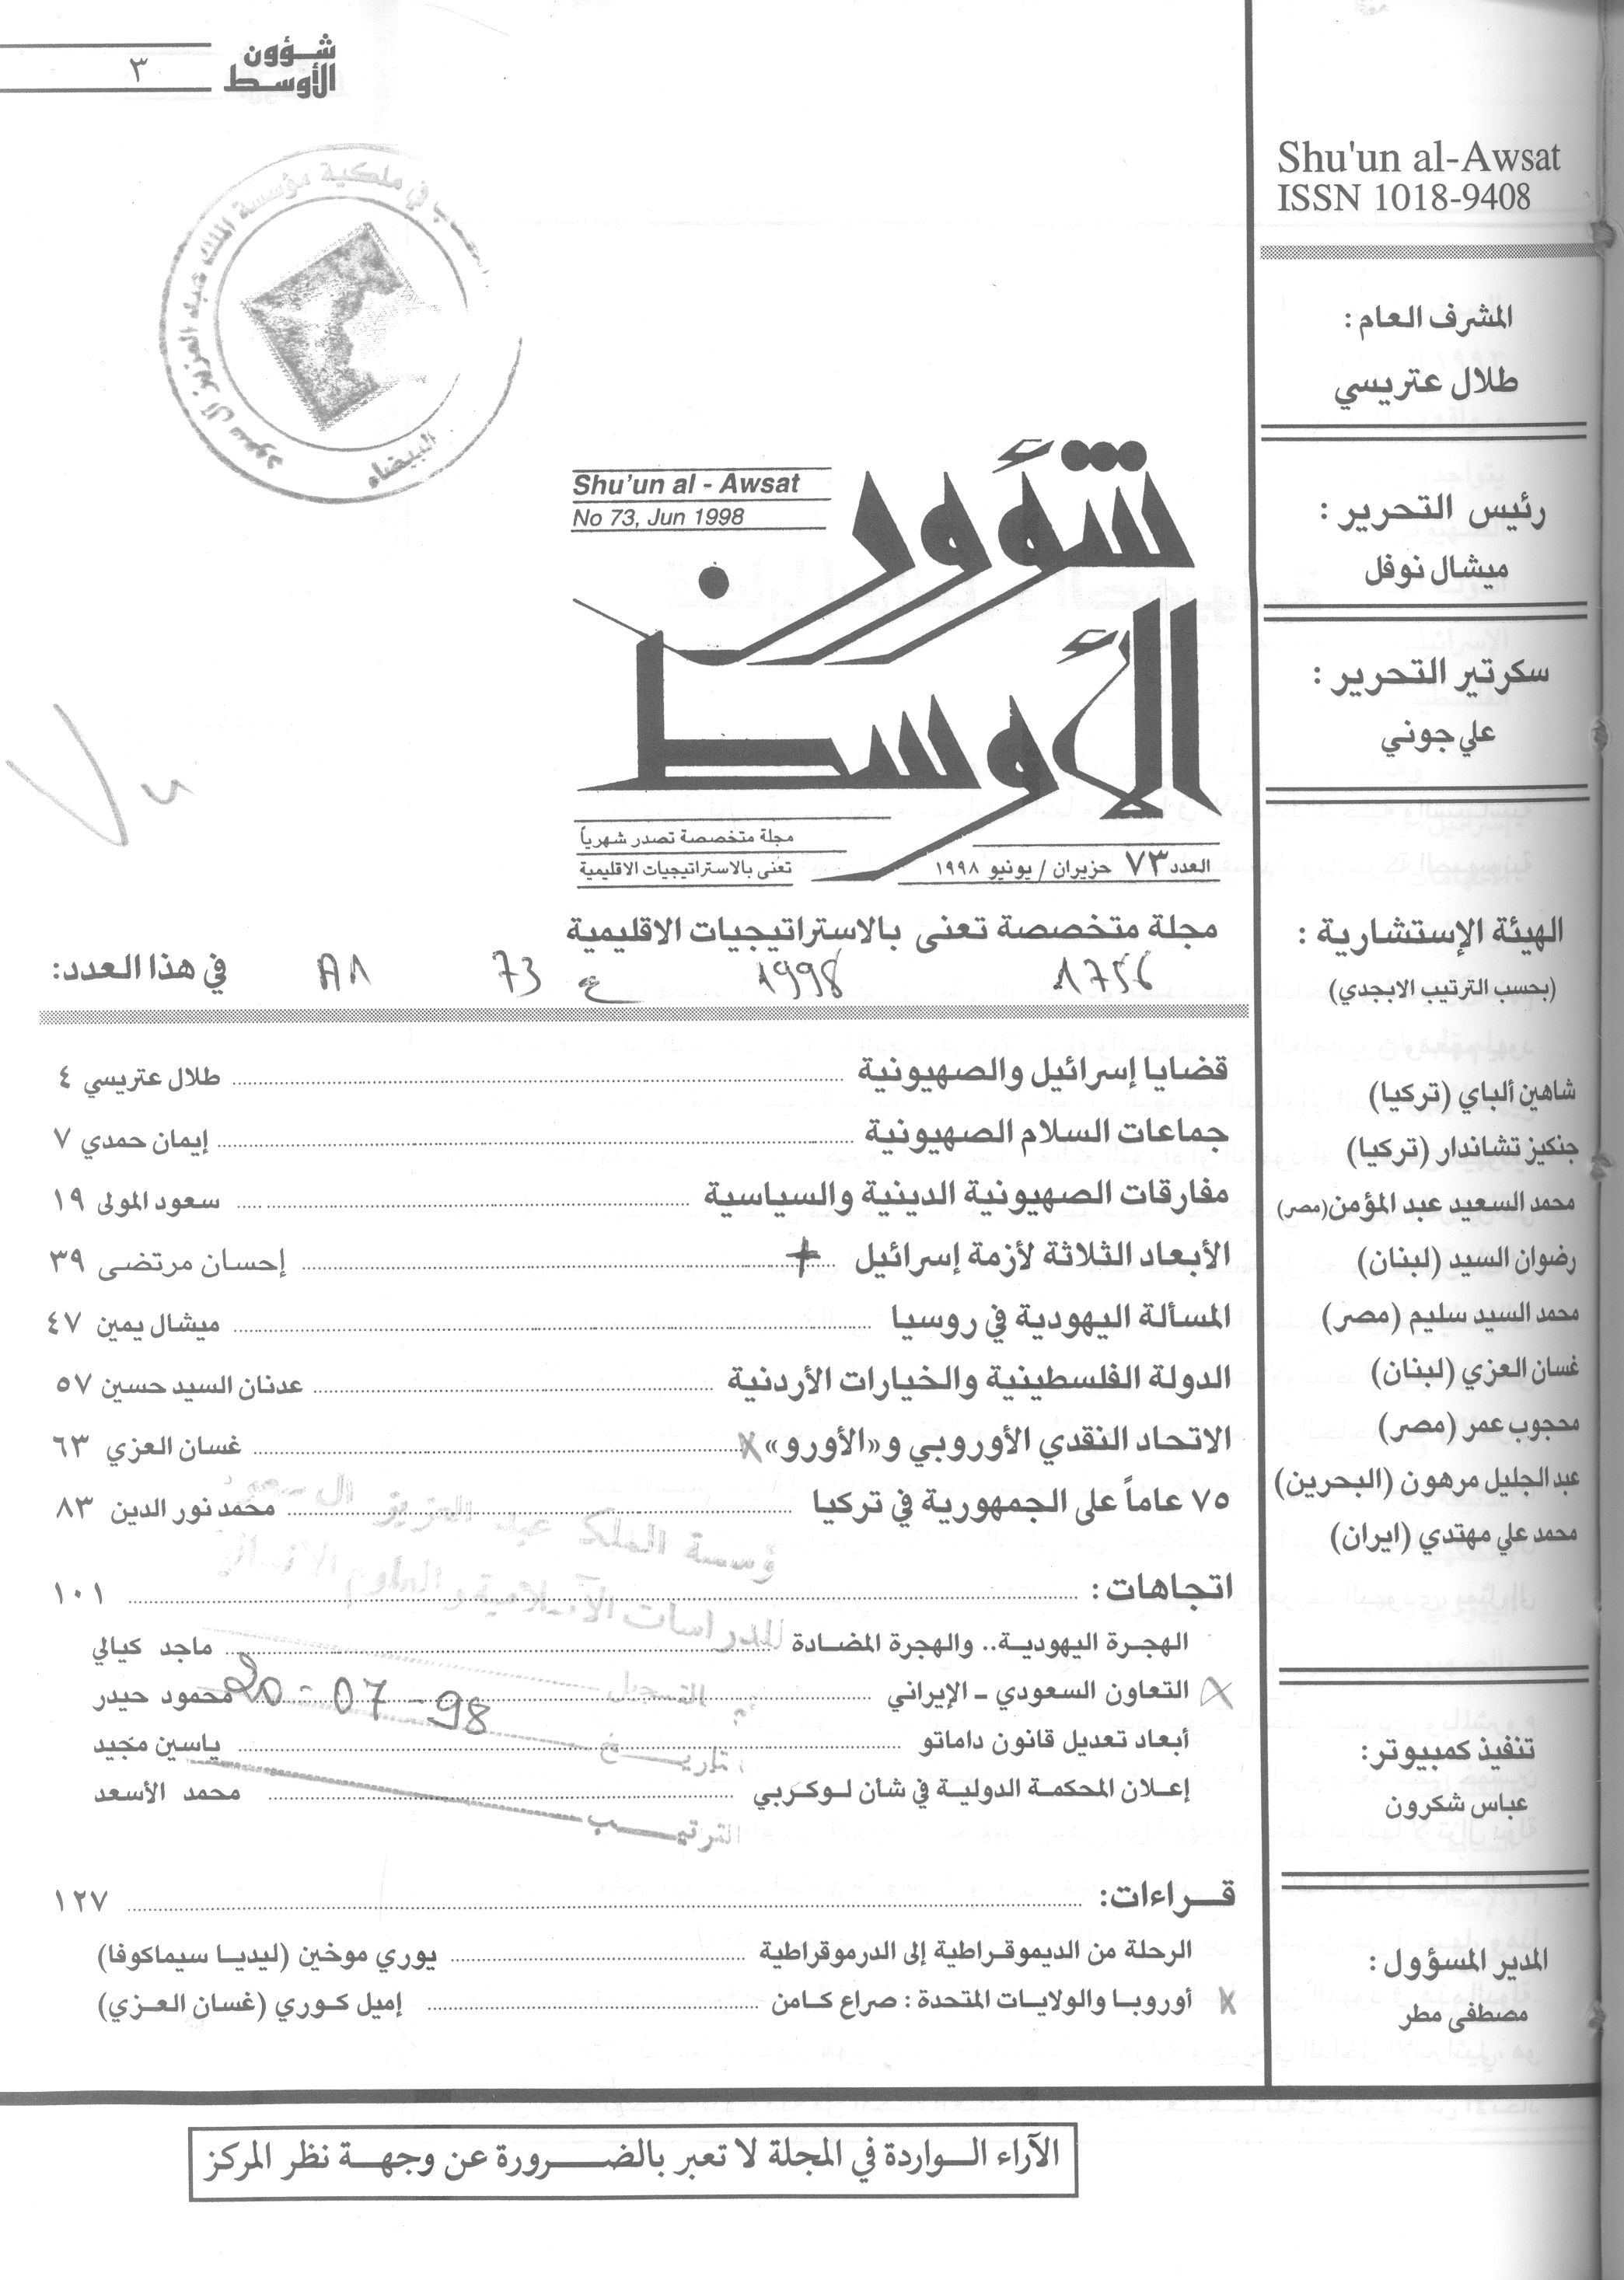 شؤون
الأوسط
٣
Shu'un al-Awsat
ISSN 1018-9408
المشرف العام :
طلال عتريسي
رئيس التحرير :
ميشال نوفل
سكرتير التحرير :
علي جوني
الهيئة الإستشارية :
(بحسب الترتيب الابجدي)
شاهين ألباي (تركيا)
جنكيز تشاندار (تركيا)
محمد السعيد عبد المؤمن(مصر)
رضوان السيد (لبنان)
محمد السيد سليم (مصر)
غسان العزي (لبنان)
محجوب عمر (مصر)
عبد الجليل مرهون (البحرين)
محمد علي مهتدي (ايران)
تنفيذ كمبيوتر:
عباس شكرون
المدير المسؤول :
مصطفى مطر
في ملكية مؤسسة الملك عبد العزيز آل سعود
البيضاء
Shu'un al - Awsat
No 73, Jun 1998
شؤون
الأوسط
مجلة متخصصة تصدر شهرياً
تعنى بالاستراتيجيات الاقليمية
العدد ٧٣ حزيران / يونيو ١٩٩٨
مجلة متخصصة تعنى بالاستراتيجيات الاقليمية
1756 1998 ع 73
في هذا العدد:
قضايا إسرائيل والصهيونية ........ طلال عتريسي ٤
جماعات السلام الصهيونية ........ إيمان حمدي ٧
مفارقات الصهيونية الدينية والسياسية ........ سعود المولى ١٩
الأبعاد الثلاثة لأزمة إسرائيل ........ إحسان مرتضى ٣٩
المسألة اليهودية في روسيا ........ ميشال يمين ٤٧
الدولة الفلسطينية والخيارات الأردنية ........ عدنان السيد حسين ٥٧
الاتحاد النقدي الأوروبي و«الأورو» ........ غسان العزي ٦٣
٧٥ عاماً على الجمهورية في تركيا ........ محمد نور الدين ٨٣
اتجاهات : ........ ١٠١
الهجرة اليهودية.. والهجرة المضادة ........ ماجد كيالي
التعاون السعودي - الإيراني ........ محمود حيدر
20-07-98
أبعاد تعديل قانون داماتو ........ ياسين مجيد
إعلان المحكمة الدولية في شأن لوكربي ........ محمد الأسعد
قراءات: ........ ١٢٧
الرحلة من الديموقراطية إلى الدرموقراطية ........ يوري موخين (ليديا سيماكوفا)
أوروبا والولايات المتحدة : صراع كامن ........ إميل كوري (غسان العزي)
الآراء الواردة في المجلة لا تعبر بالضرورة عن وجهة نظر المركز